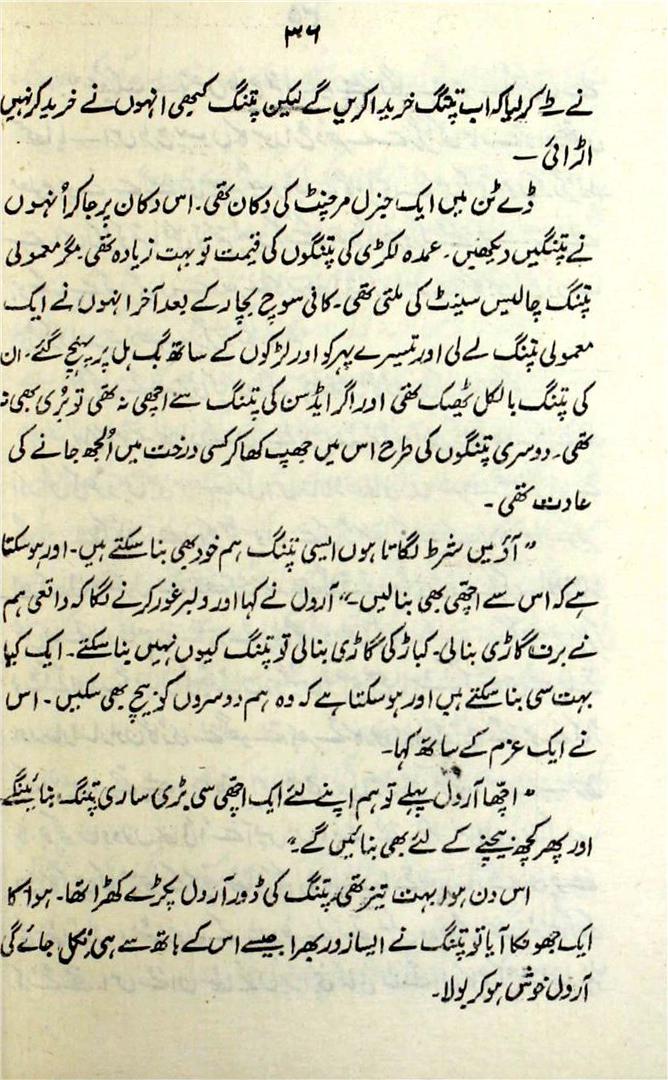 ۳۶
نے طے کر لیا کہ اب پتنگ خریدا کریں گے لیکن پتنگ کبھی انہوں نے خرید کر نہیں
اڑائی —
ڈے ٹن میں ایک جنرل مرچنٹ کی دکان تھی۔ اس دکان پر جا کر اُنہوں
نے پتنگیں دیکھیں۔ عمدہ لکڑی کی پتنگوں کی قیمت تو بہت زیادہ تھی مگر معمولی
پتنگ چالیس سینٹ کی ملتی تھی۔ کافی سوچ بچار کے بعد آخر انہوں نے ایک
معمولی پتنگ لے لی اور تیسرے پہر کو اور لڑکوں کے ساتھ بگ ہل پر پہنچ گئے۔ ان
کی پتنگ بالکل ٹھیک تھی اور اگر ایڈسن کی پتنگ سے اچھی نہ تھی تو بُری بھی نہ
تھی۔ دوسری پتنگوں کی طرح اس میں جھپ کھا کر کسی درخت میں اُلجھ جانے کی
عادت تھی۔
"آؤ میں شرط لگاتا ہوں ایسی پتنگ ہم خود بھی بنا سکتے ہیں۔ اور ہو سکتا
ہے کہ اس سے اچھی بھی بنا لیں۔" آرول نے کہا اور ولبر غور کرنے لگا کہ واقعی ہم
نے برف گاڑی بنا لی۔ کباڑ کی گاڑی بنا لی تو پتنگ کیوں نہیں بنا سکتے۔ ایک کیا
بہت سی بنا سکتے ہیں اور ہو سکتا ہے کہ وہ ہم دوسروں کو بیچ بھی سکیں۔ اس
نے ایک عزم کے ساتھ کہا۔
"اچھا آرول پہلے تو ہم اپنے لئے ایک اچھی سی بڑی ساری پتنگ بنائینگے
اور پھر کچھ بیچنے کے لئے بھی بنائیں گے۔"
اس دن ہوا بہت تیز تھی پتنگ کی ڈور آرول پکڑے کھڑا تھا۔ ہوا کا
ایک جھونکا آیا تو پتنگ نے ایسا زور بھرا جیسے اس کے ہاتھ سے ہی نکل جائے گی
آرول خوش ہو کر بولا۔